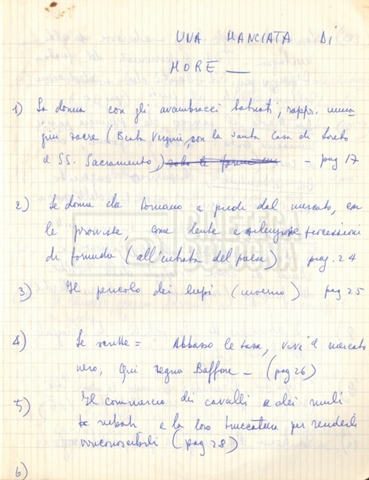 UNA MANCIATA DI
MORE —
1) La donna con gli avambracci tatuati, rappr. imma-
gini sacre (Beata Vergine, con la Santa Casa di Loreto
e SS. Sacramento) - pag 17
2) Le donne che tornano a piedi dal mercato, con
le provviste, come lente e silenziose processioni
di formiche (all'entrata del paese) pag. 24
3) Il pericolo dei lupi (inverno) pag 25
4) Le scritte = Abbasso le tasse, viva il mercato
nero, qui regna Baffone — (pag 26)
5) Il commercio dei cavalli e dei muli
rubati e la loro truccatura per renderli
irriconoscibili (pag 28)
6)